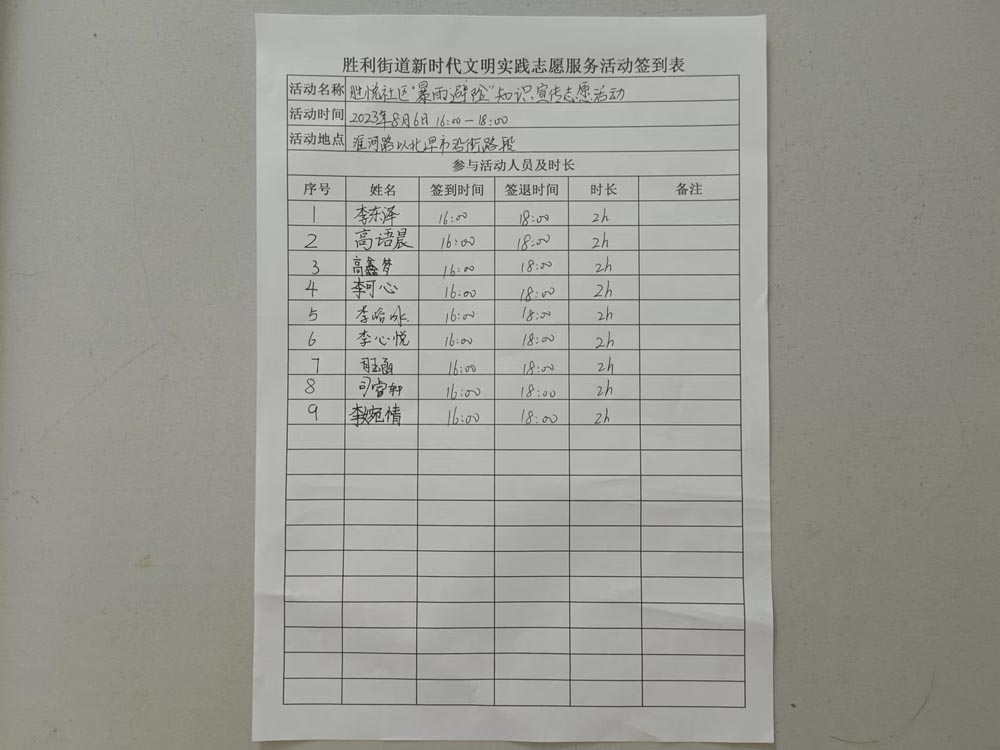 胜利街道新时代文明实践志愿服务活动签到表
活动名称 胜悦社区"暴雨避险"知识宣传志愿活动
活动时间 2023年8月6日 16:00-18:00
活动地点 淮河路以北早市沿街路段
参与活动人员及时长
序号 姓名 签到时间 签退时间 时长 备注
1 李东泽 16:00 18:00 2h
2 高语晨 16:00 18:00 2h
3 高鑫梦 16:00 18:00 2h
4 李可心 16:00 18:00 2h
5 李哈冰 16:00 18:00 2h
6 李心悦 16:00 18:00 2h
7 16:00 18:00 2h
8 司睿轩 16:00 18:00 2h
9 李婉情 16:00 18:00 2h